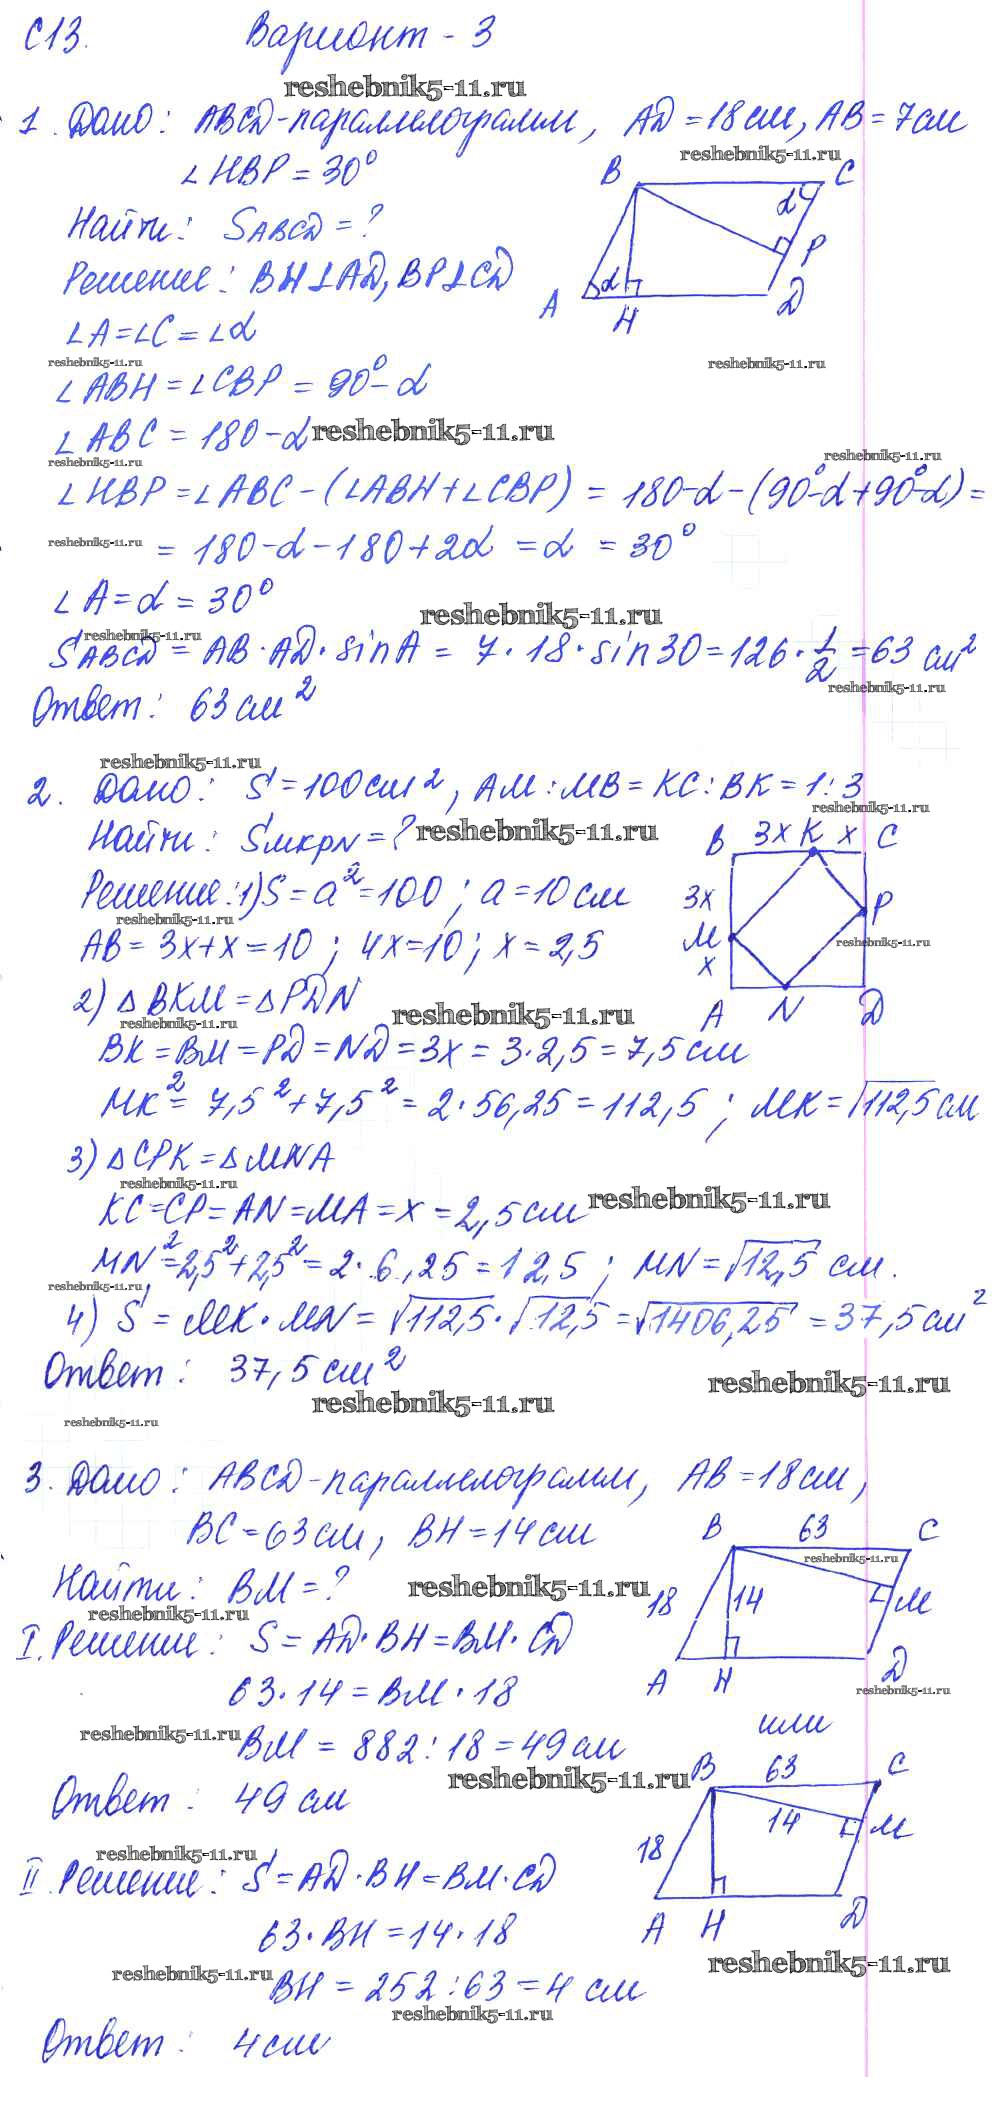 С13. Вариант - 3
reshebnik5-11.ru
1. Дано: ABCD-параллелограмм, AD = 18 см, AB = 7 см
reshebnik5-11.ru
∠HBP = 30°
B C α P A α H D
Найти: SABCD = ?
Решение: BH⊥AD, BP⊥CD
∠A = ∠C = ∠α
reshebnik5-11.ru reshebnik5-11.ru
∠ABH = ∠CBP = 90° - α
∠ABC = 180 - α reshebnik5-11.ru
reshebnik5-11.ru reshebnik5-11.ru
∠HBP = ∠ABC - (∠ABH + ∠CBP) = 180 - α - (90° - α + 90° - α) =
reshebnik5-11.ru = 180 - α - 180 + 2α = α = 30°
∠A = α = 30° reshebnik5-11.ru
reshebnik5-11.ru
SABCD = AB · AD · sin A = 7 · 18 · sin 30 = 126 · 1/2 = 63 см²
reshebnik5-11.ru
Ответ: 63 см²
reshebnik5-11.ru
2. Дано: S = 100 см², AM : MB = KC : BK = 1 : 3
reshebnik5-11.ru
Найти: SMKPN = ? reshebnik5-11.ru
B 3x K x C 3x P M x A N D
Решение: 1) S = a² = 100; a = 10 см
reshebnik5-11.ru
AB = 3x + x = 10; 4x = 10; x = 2,5
reshebnik5-11.ru
2) △BKM = △PDN
reshebnik5-11.ru reshebnik5-11.ru
BK = BM = PD = ND = 3x = 3 · 2,5 = 7,5 см
MK² = 7,5² + 7,5² = 2 · 56,25 = 112,5; MK = √112,5 см
3) △CPK = △MNA
reshebnik5-11.ru reshebnik5-11.ru
KC = CP = AN = MA = x = 2,5 см
MN² = 2,5² + 2,5² = 2 · 6,25 = 12,5; MN = √12,5 см.
reshebnik5-11.ru
4) S = MK · MN = √112,5 · √12,5 = √1406,25 = 37,5 см²
Ответ: 37,5 см²
reshebnik5-11.ru reshebnik5-11.ru
reshebnik5-11.ru
3. Дано: ABCD-параллелограмм, AB = 18 см,
BC = 63 см, BH = 14 см
B 63 C 18 14 M A H D
reshebnik5-11.ru
Найти: BM = ? reshebnik5-11.ru
reshebnik5-11.ru
I. Решение: S = AD · BH = BM · CD
63 · 14 = BM · 18
reshebnik5-11.ru
или
reshebnik5-11.ru
BM = 882 : 18 = 49 см
reshebnik5-11.ru
B 63 C 14 M 18 A H D
Ответ: 49 см
reshebnik5-11.ru
II. Решение: S = AD · BH = BM · CD
63 · BH = 14 · 18
reshebnik5-11.ru
reshebnik5-11.ru
BH = 252 : 63 = 4 см
reshebnik5-11.ru
Ответ: 4 см